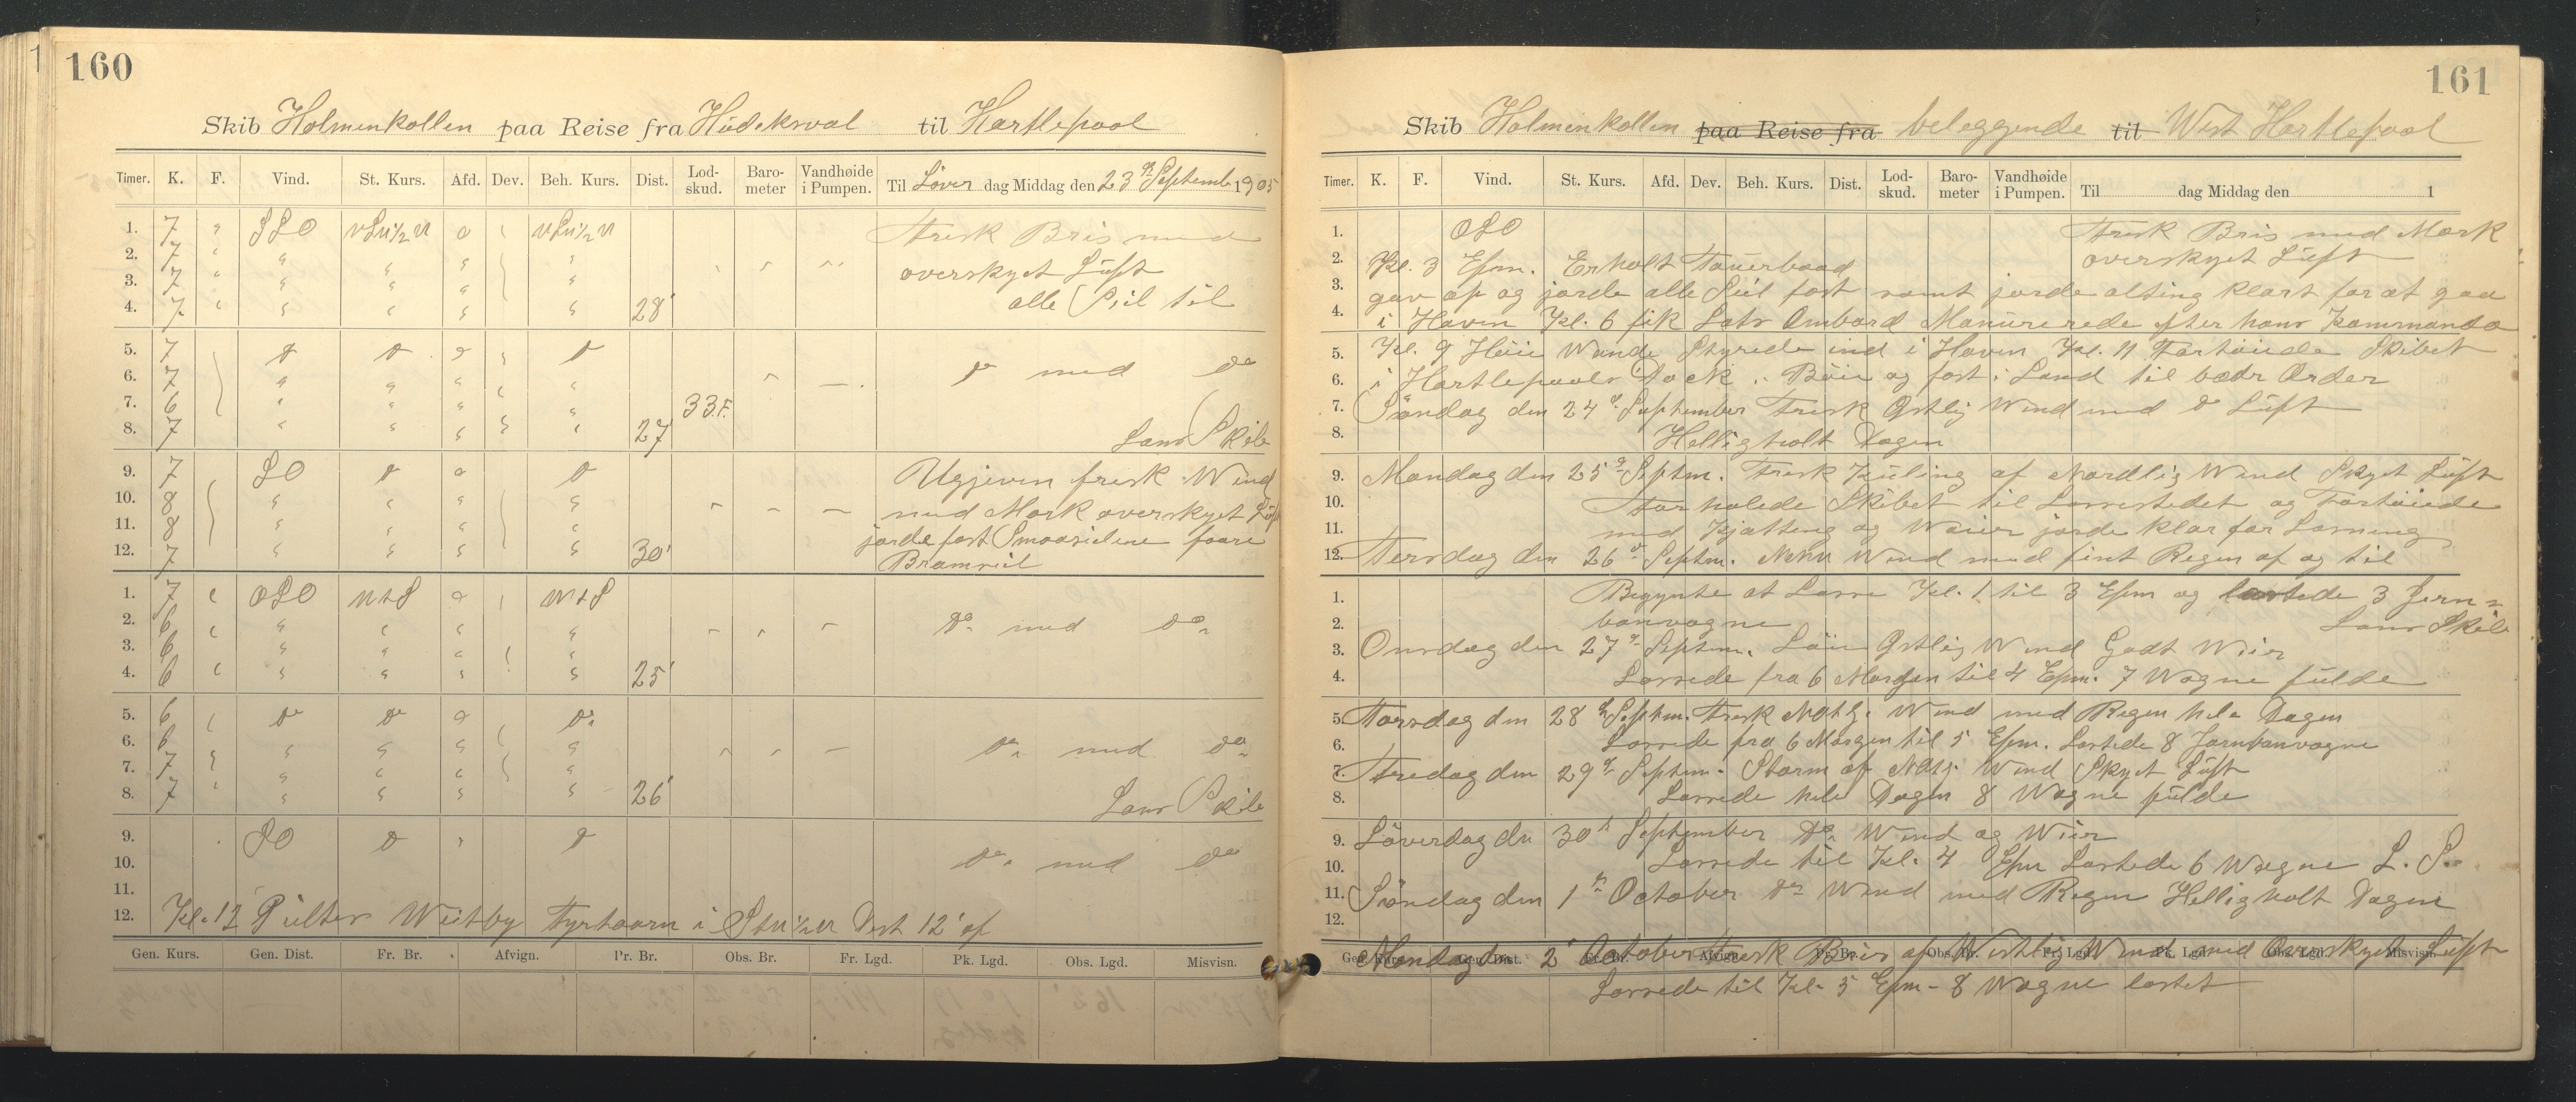 160
Skib Holmenkollen paa Reise fra Hudeksval til Hartlepool
Timer. K. F. Vind. St. Kurs. Afd. Dev. Beh. Kurs. Dist. Lod-skud. Baro-meter Vandhøide i Pumpen. Til Löver dag Middag den 23 September 1905
1. 7 " SSO 0 Frisk Bris med
2. 7 " " " " " overskyet Luft
3. 7 " " " " "
4. 7 " " " " " 28' alle Seil til
5. 7 do do do do do med do
6. 7 " " " "
7. 6 " " " " 33 F.
8. 7 " " " " 27 Lans Skib
9. 7 SO do o do Ugjeven frisk Wind
10. 8 " " " " med Mørk overskyet Luft
11. 8 " " " " jorde fast Smaaseilene
12. 7 " " " " 30' Bramseil
1. 7 " OSO NtS o NtS
2. 6 " " " " " do med do
3. 6 " " " "
4. 6 " " " " " 25'
5. 6 do do o do
6. 6 " " " " do med do
7. 7 " " " "
8. 7 " " " " 26' Lans Skib
9. SO do " do
10. do med do
11.
12. Kl. 12 Peiltes Weitby Fyrtaarn i Dist 12' af
Gen. Kurs. Gen. Dist. Fr. Br. Afvign. Pr. Br. Obs. Br. Fr. Lgd. Pk. Lgd. Obs. Lgd. Misvisn.
161
Skib Holmenkollen paa Reise fra beleggende til West Hartlepool
Timer. K. F. Vind. St. Kurs. Afd. Dev. Beh. Kurs. Dist. Lod-skud. Baro-meter Vandhøide i Pumpen. Til dag Middag den 1
1. OSO Frisk Bris med Mørk
2. overskyet Luft
Kl. 3 Efm. Erholt Tauerbaad
3. gav op og jorde alle Seil fast samt jorde alting klart for at gaa
4. i Havn Kl. 6 fik Lots Ombord Manurerede efter hans Kommando
5. Kl. 9 Höie Wande Styrede ind i Havn Kl. 11 Fortöiede Skibet
6. i Hartlepools Dock i Böie og fast i Land til bedr Order
7. Söndag den 24 September Frisk Östlig Wind med do Luft
8. Helligholt Dagen
9. Mandag den 25 Septm. Frisk Kuling af Nordlig Wind Skyet Luft
10. Forhalede Skibet til Lossestedet og Fortöiede
11. med Kjætting og Waier jorde klar for Losning
12. Tersdag den 26 Septm. Wind med fint Regen af og til
1. Begynte at Losse Kl. 1 til 3 Efm og lastede 3 Jern=
2. banvogne Lans Skib
3. Onsdag den 27 Septm. Löi Östlig Wind Godt Weir
4. Lossede fra 6 Morgen til 4 Efm. 7 Wogne fulde
5. Torsdag den 28 Septm. Frisk Wind med Regen hele Dagen
6. Lossede fra 6 Morgen til 5 Efm. Lastede 8 Jarnbanvogne
7. Fredag den 29 Septem. Storm af Wind Skyet Luft
8. Lossede hele Dagen 8 Wogne fulde
9. Löverdag dn 30 September do Wind og Weir
10. Lossede til Kl. 4 Efm Lastede 6 Wogne L. S.
11. Söndag den 1 October do Wind med Regen Helligholt Dagen
12.
Gen. Kurs. Gen. Dist. Fr. Br. Afvign. Pr. Br. Obs. Br. Fr. Lgd. Pk. Lgd. Obs. Lgd. Misvisn.
Mandag dn 2 October Frisk Bris af Westlig Wind med Overskyet Luft
Lossede til Kl. 5 Efm - 8 Wogne lastet